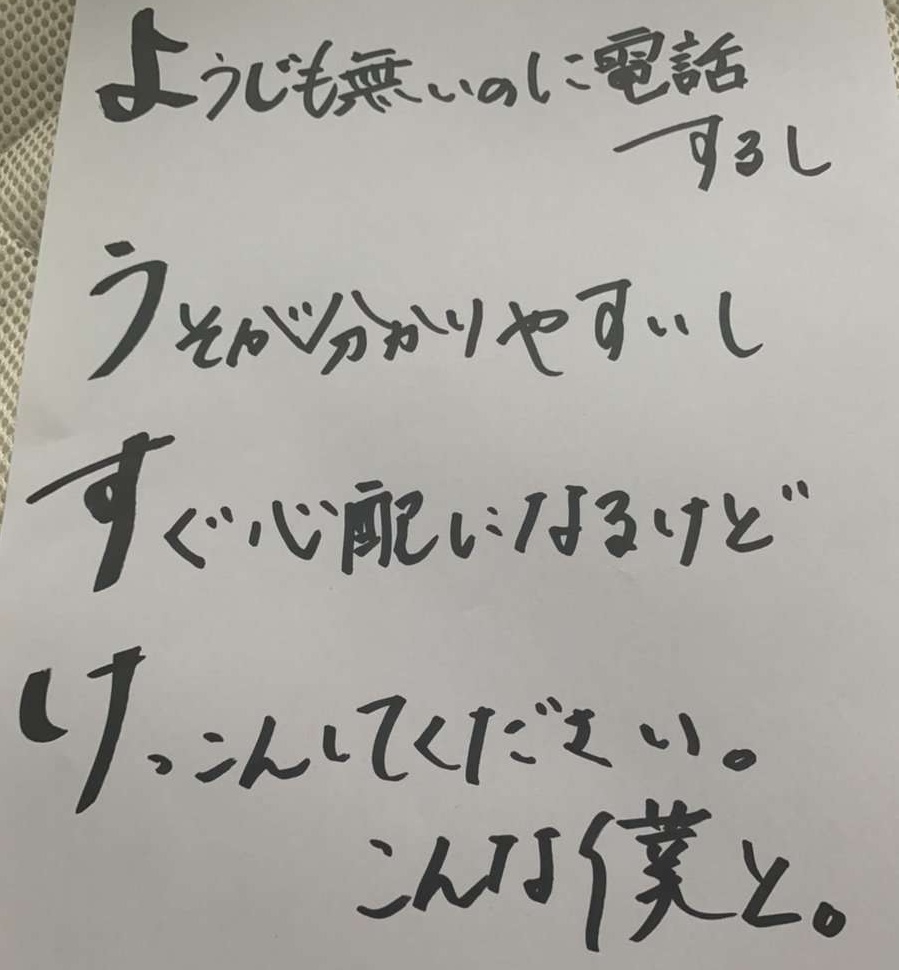 ようじも無いのに電話
するし
うそが分かりやすいし
すぐ心配になるけど
けっこんしてください。
こんな僕と。